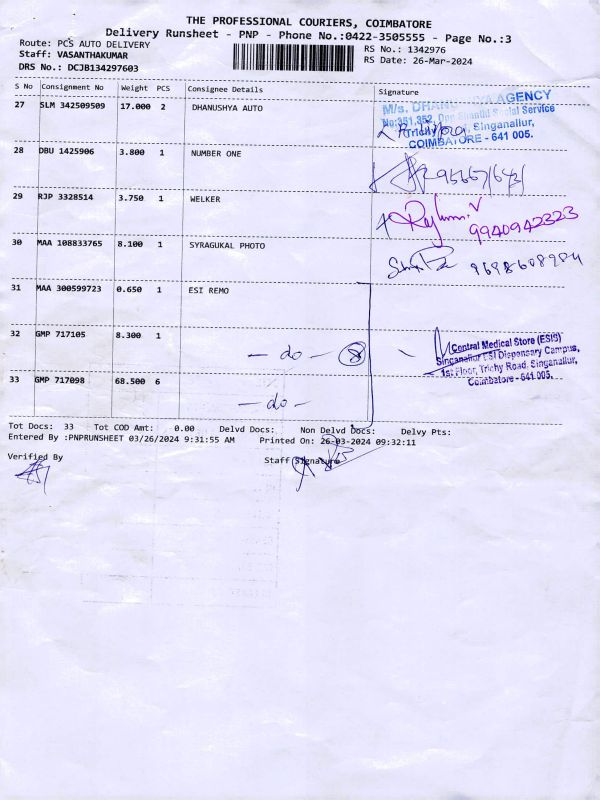 THE PROFESSIONAL COURIERS, COIMBATORE
Delivery Runsheet - PNP - Phone No.:0422-3505555 - Page No.:3
Route: PCS AUTO DELIVERY
RS No.: 1342976
Staff: VASANTHAKUMAR
RS Date: 26-Mar-2024
DRS No.: DCJB134297603
S No Consignment No Weight PCS Consignee Details Signature
27 SLM 342509509 17.000 2 DHANUSHYA AUTO
M/s. DHANU AGENCY
No:351,352, Social Service
Trichy Road, Singanallur,
COIMBATORE - 641 005.
28 DBU 1425906 3.800 1 NUMBER ONE
29 RJP 3328514 3.750 1 WELKER
9940942323
30 MAA 108833765 8.100 1 SYRAGUKAL PHOTO
9698608984
31 MAA 300599723 0.650 1 ESI REMO
32 GMP 717105 8.300 1
- do - 8
Central Medical Store (ESIS)
Singanallur ESI Dispensary Campus,
1st Floor, Trichy Road, Singanallur,
Coimbatore - 641 005.
33 GMP 717098 68.500 6
- do -
Tot Docs: 33 Tot COD Amt: 0.00 Delvd Docs: Non Delvd Docs: Delvy Pts:
Entered By :PNPRUNSHEET 03/26/2024 9:31:55 AM Printed On: 26-03-2024 09:32:11
Verified By
Staff Signature